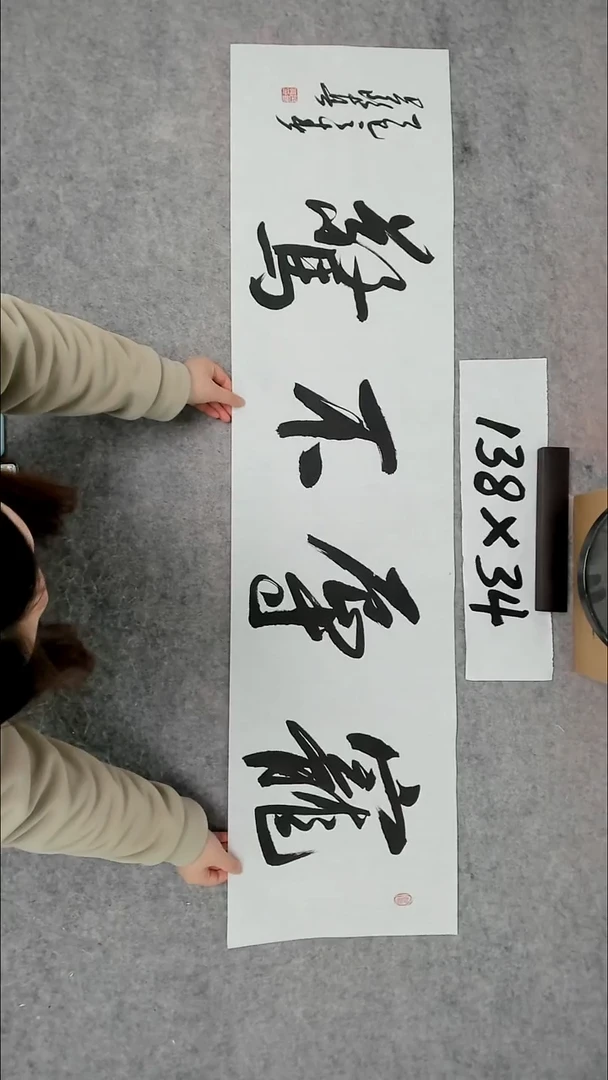 寵辱不驚
138×34